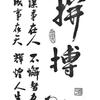 拼搏
謀事在人 不懈努力
成事在天 輝煌人生